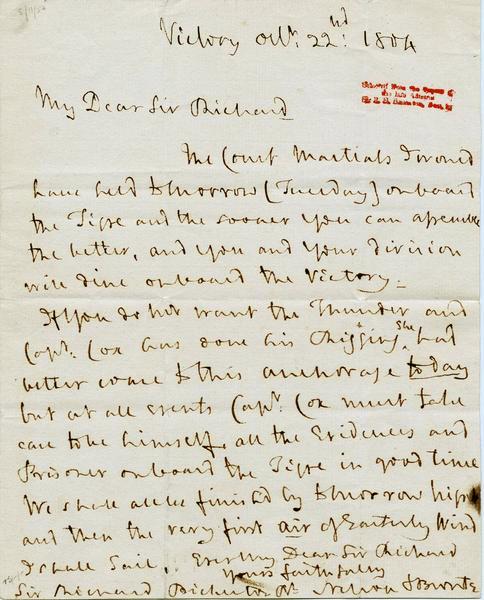 Victory Octr. 22nd: 1804
My Dear Sir Richard
The Court Martials I would
have held tomorrow (Tuesday) onboard
the Tigre and the sooner you can assemble
the better, and you and your division
will dine onboard the Victory.
If you do not want the Thunder and
Capt. Cox has done his rigging She had
better come to this anchorage today
but at all events Capt. Cox must take
care to be himself, all the Evidences and
Prisoner onboard the Tigre in good time
We shall all be finished by tomorrow night
and then the very first air of Easterly Wind
I shall Sail. Ever My Dear Sir Richard
Yours faithfully
Sir Richard Bickerton Bt. Nelson & Bronte